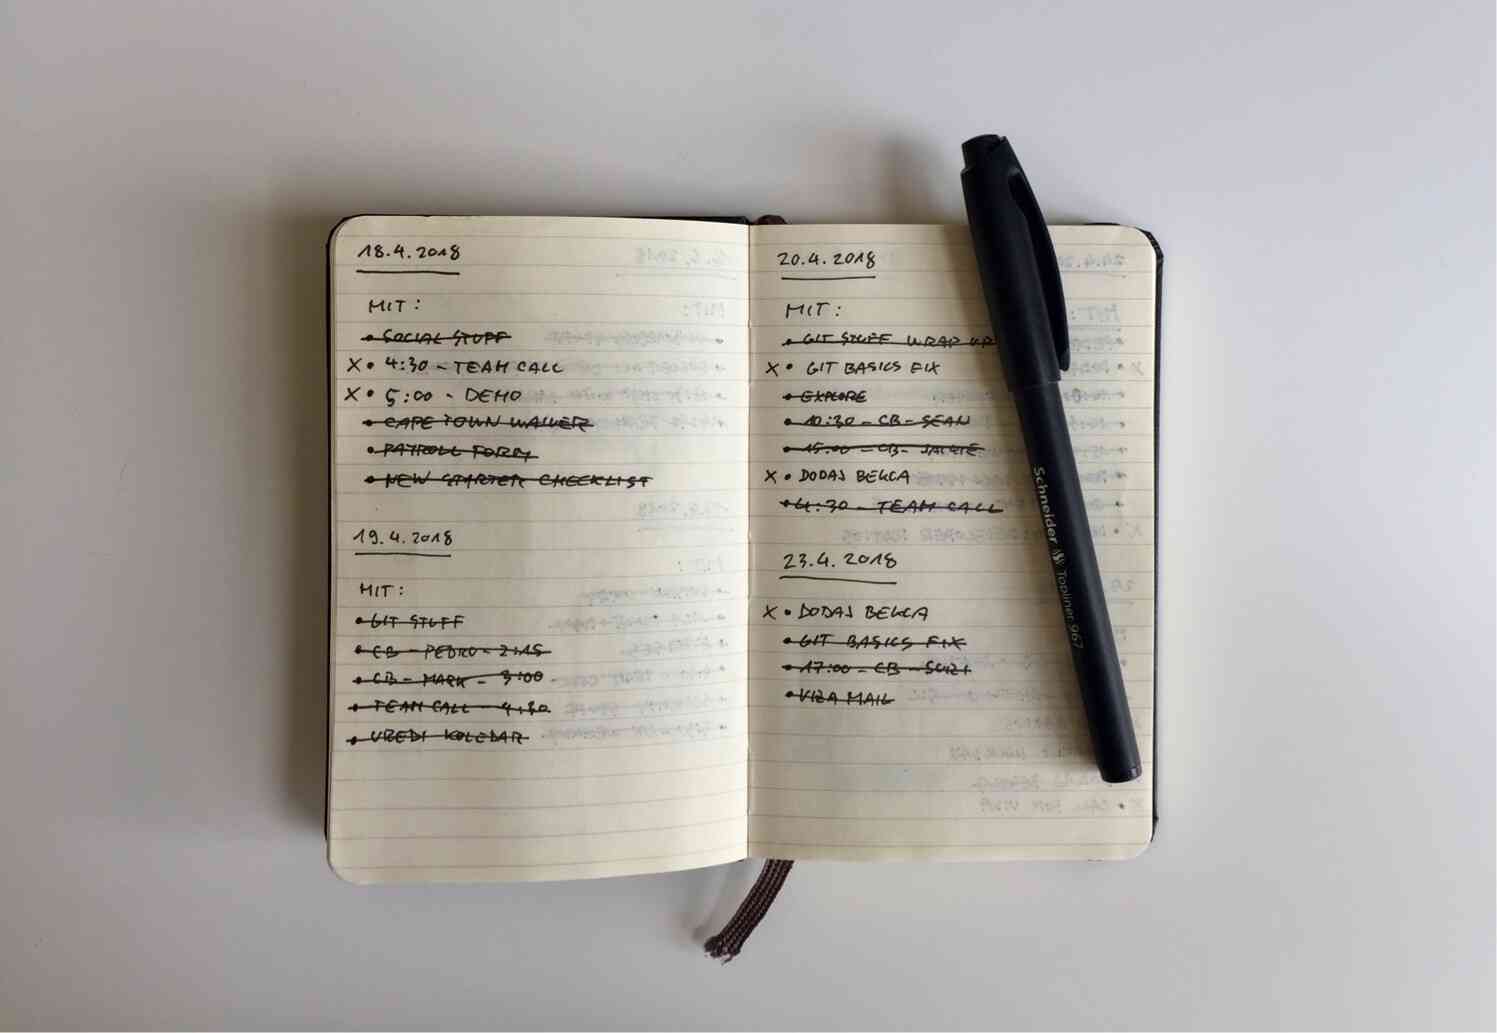 18.4.2018
MIT:
• SOCIAL STUFF
X • 4:30 - TEAM CALL
X • 5:00 - DEMO
• CAPE TOWN WALKER
• PAYROLL FORM
• NEW STARTER CHECKLIST
19.4.2018
MIT:
• GIT STUFF
• CB - PEDRO - 2:15
• CB - MARK - 3:00
• TEAM CALL - 4:30
• UREDI KOLEDAR
20.4.2018
MIT:
• GIT STUFF WRAP UP
X • GIT BASICS FIX
• EXPLORE
• 10:30 - CB - SEAN
• 15:00 - CB -
X • DODAJ BELCA
• 4:30 - TEAM CALL
23.4.2018
X • DODAJ BELCA
• GIT BASICS FIX
• 17:00 - CB - SUZI
• VIZA MAIL
Schneider Topliner 967